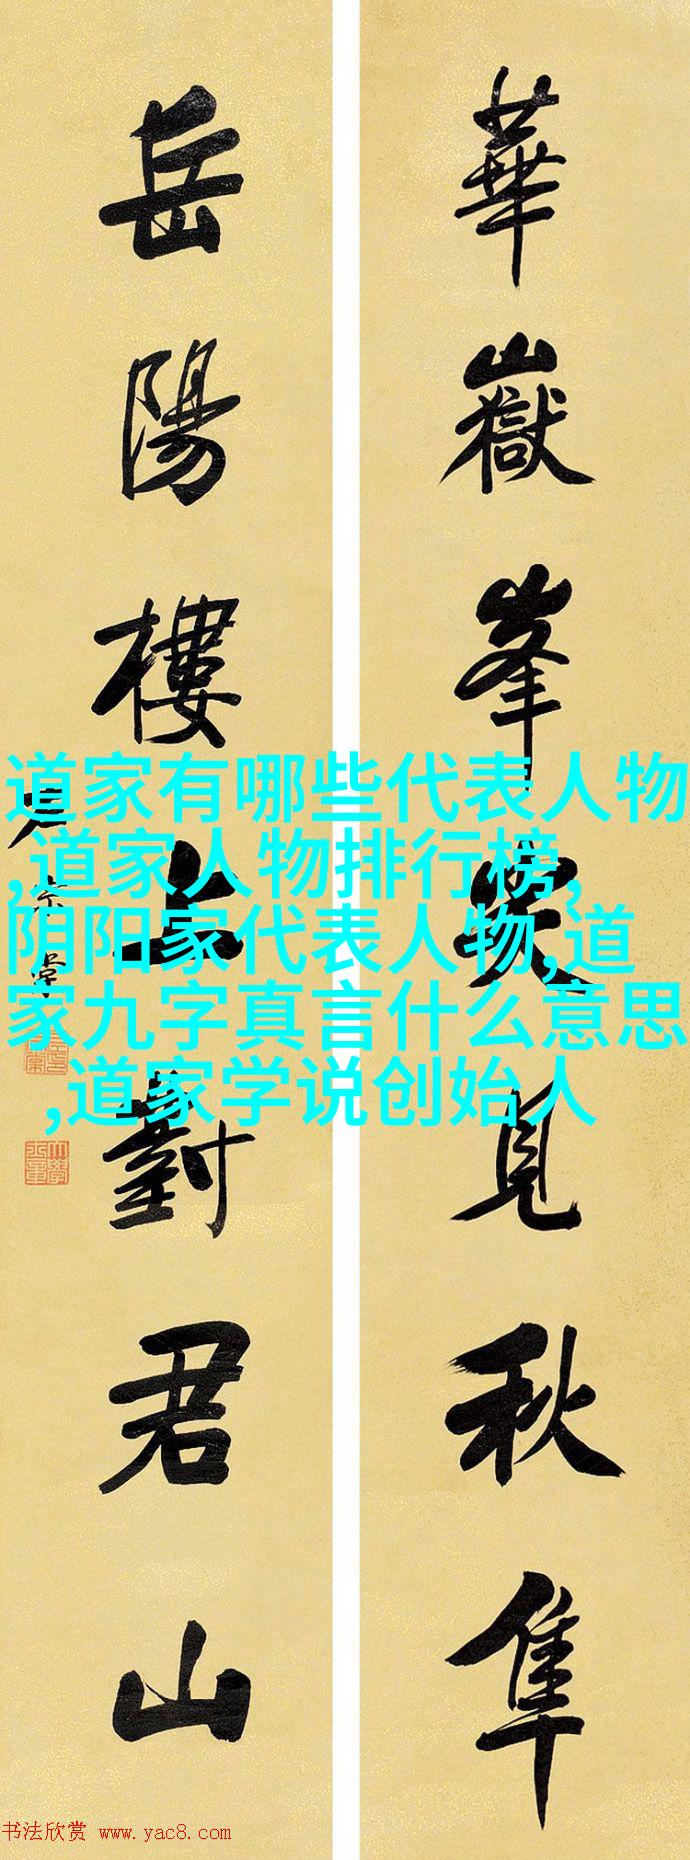 華嶽峯尖見秋隼
岳陽樓上對君山
道家有哪些代表人物
,道家人物排行榜,
阴阳家代表人物,道
家九字真言什么意思
,道家学说创始人
书法欣赏 www.yac8.com